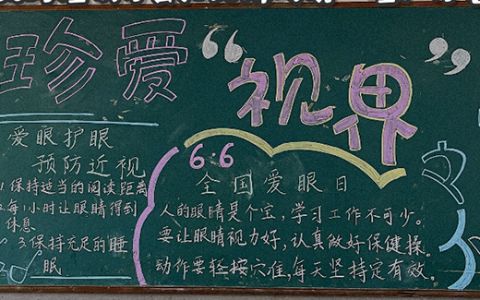 珍爱“视界”
爱眼护眼
预防近视
1保持适当的阅读距离
2每1小时让眼睛得到
休息
3.保持充足的睡
眠
6:6
全国爱眼日
人的眼睛是个宝,学习工作不可少。
要让眼睛视力好,认真做好保健操。
动作要轻按穴准,每天坚持定有效。